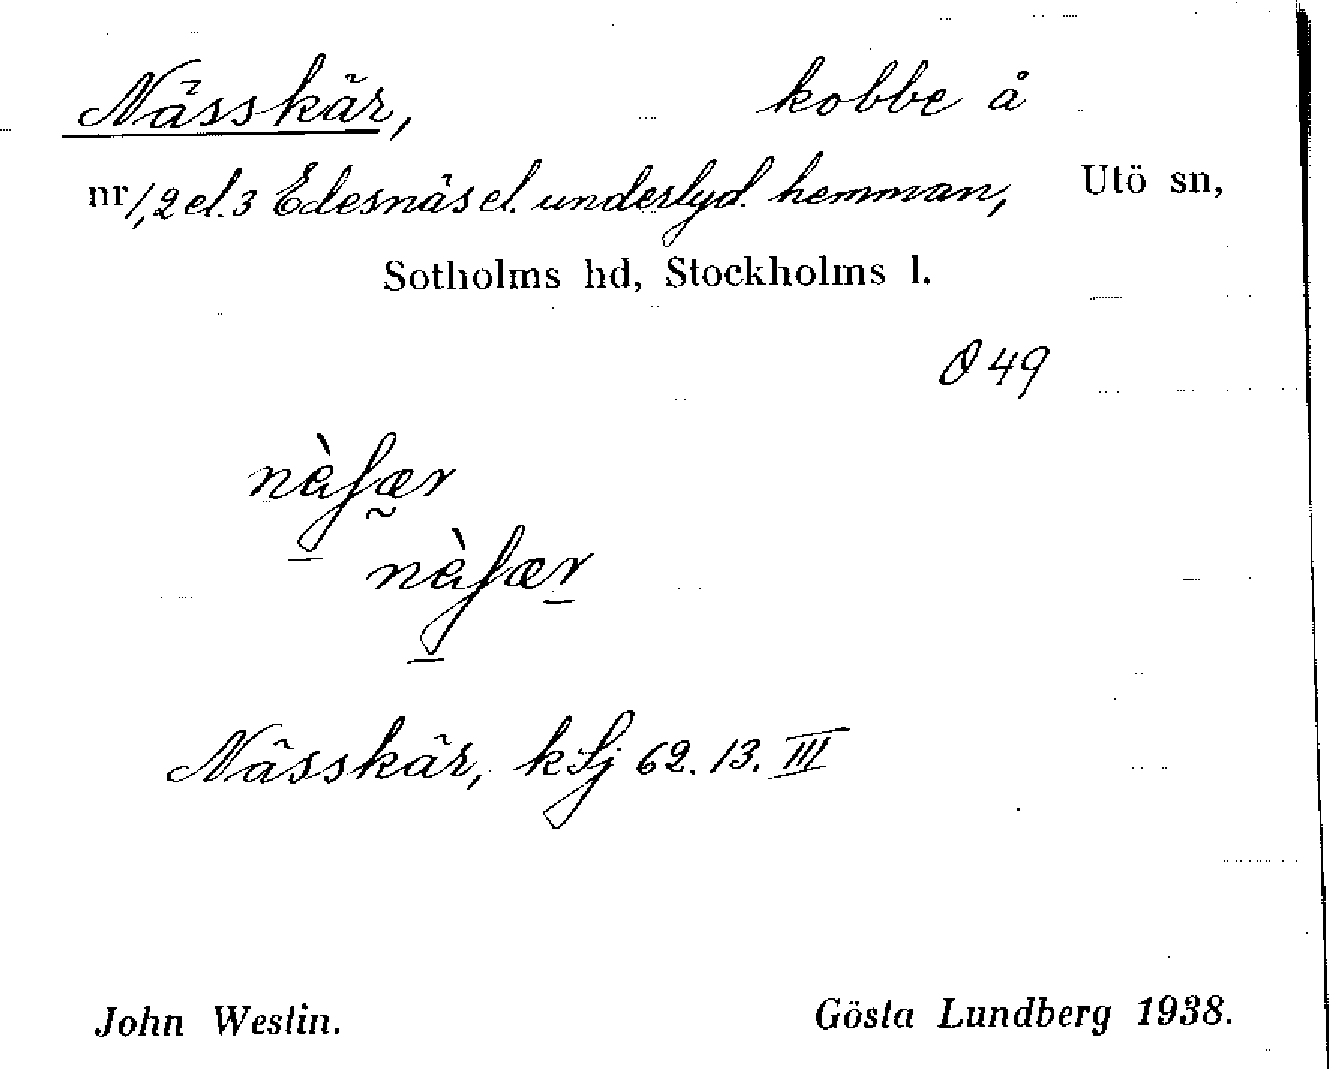 Nässkär, kobbe å
nr 1, 2 el. 3 Edesnäs el. underlyd. hemman, Utö sn,
Sotholms hd, Stockholms l.
Ö 49
Nässkär, kSj 62. 13. III
John Westin. Gösta Lundberg 1938.